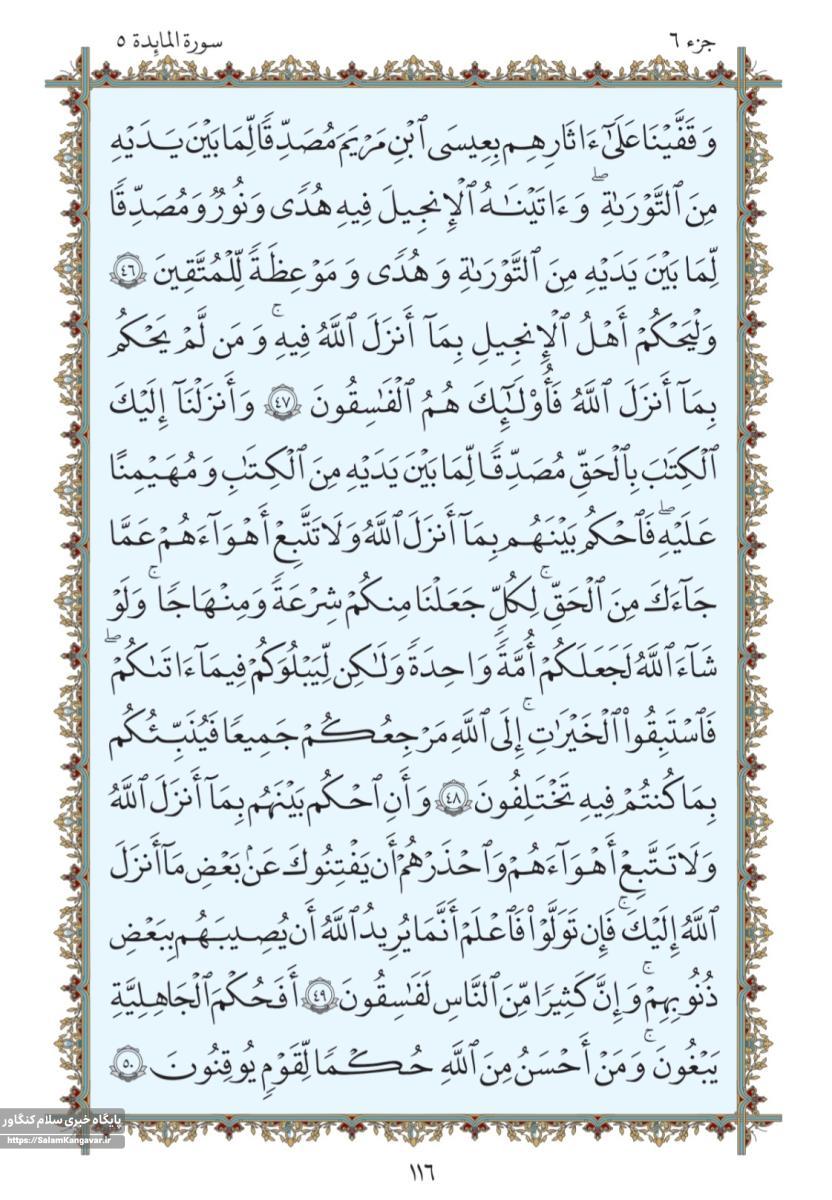 جزء ٦
سورة المایٕدة ٥
وَقَفَّيۡنَا عَلَىٰٓ ءَاثَٰرِهِم بِعِيسَى ٱبۡنِ مَرۡيَمَ مُصَدِّقٗا لِّمَا بَيۡنَ يَدَيۡهِ
مِنَ ٱلتَّوۡرَىٰةِۖ وَءَاتَيۡنَٰهُ ٱلۡإِنجِيلَ فِيهِ هُدٗى وَنُورٞ وَمُصَدِّقٗا
لِّمَا بَيۡنَ يَدَيۡهِ مِنَ ٱلتَّوۡرَىٰةِ وَهُدٗى وَمَوۡعِظَةٗ لِّلۡمُتَّقِينَ ٤٦
وَلۡيَحۡكُمۡ أَهۡلُ ٱلۡإِنجِيلِ بِمَآ أَنزَلَ ٱللَّهُ فِيهِۚ وَمَن لَّمۡ يَحۡكُم
بِمَآ أَنزَلَ ٱللَّهُ فَأُوْلَٰٓئِكَ هُمُ ٱلۡفَٰسِقُونَ ٤٧ وَأَنزَلۡنَآ إِلَيۡكَ
ٱلۡكِتَٰبَ بِٱلۡحَقِّ مُصَدِّقٗا لِّمَا بَيۡنَ يَدَيۡهِ مِنَ ٱلۡكِتَٰبِ وَمُهَيۡمِنًا
عَلَيۡهِۖ فَٱحۡكُم بَيۡنَهُم بِمَآ أَنزَلَ ٱللَّهُ وَلَا تَتَّبِعۡ أَهۡوَآءَهُمۡ عَمَّا
جَآءَكَ مِنَ ٱلۡحَقِّۚ لِكُلّٖ جَعَلۡنَا مِنكُمۡ شِرۡعَةٗ وَمِنۡهَاجٗاۚ وَلَوۡ
شَآءَ ٱللَّهُ لَجَعَلَكُمۡ أُمَّةٗ وَٰحِدَةٗ وَلَٰكِن لِّيَبۡلُوَكُمۡ فِي مَآ ءَاتَىٰكُمۡۖ
فَٱسۡتَبِقُواْ ٱلۡخَيۡرَٰتِۚ إِلَى ٱللَّهِ مَرۡجِعُكُمۡ جَمِيعٗا فَيُنَبِّئُكُم
بِمَا كُنتُمۡ فِيهِ تَخۡتَلِفُونَ ٤٨ وَأَنِ ٱحۡكُم بَيۡنَهُم بِمَآ أَنزَلَ ٱللَّهُ
وَلَا تَتَّبِعۡ أَهۡوَآءَهُمۡ وَٱحۡذَرۡهُمۡ أَن يَفۡتِنُوكَ عَنۢ بَعۡضِ مَآ أَنزَلَ
ٱللَّهُ إِلَيۡكَۖ فَإِن تَوَلَّوۡاْ فَٱعۡلَمۡ أَنَّمَا يُرِيدُ ٱللَّهُ أَن يُصِيبَهُم بِبَعۡضِ
ذُنُوبِهِمۡۗ وَإِنَّ كَثِيرٗا مِّنَ ٱلنَّاسِ لَفَٰسِقُونَ ٤٩ أَفَحُكۡمَ ٱلۡجَٰهِلِيَّةِ
يَبۡغُونَۚ وَمَنۡ أَحۡسَنُ مِنَ ٱللَّهِ حُكۡمٗا لِّقَوۡمٖ يُوقِنُونَ ٥٠
پایگاه خبری سلام کنگاور
https://SalamKangavar.ir
١١٦